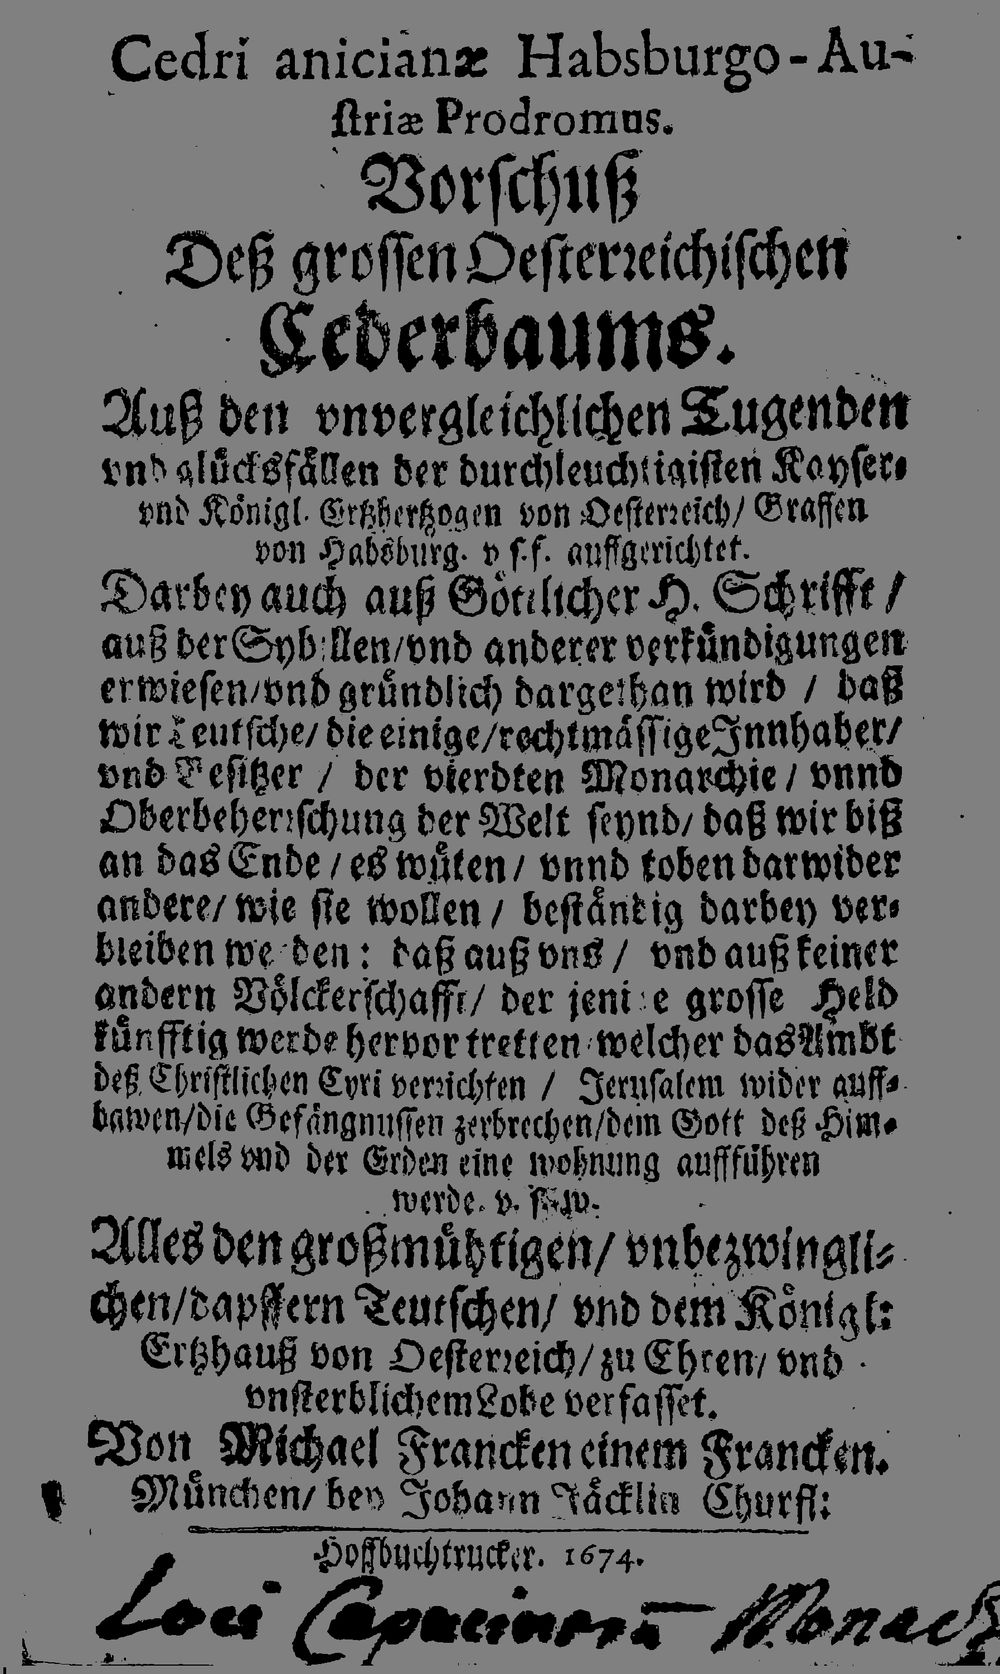 Cedri anicianæ Habsburgo-Au-
striæ Prodromus.
Vorschuß
Deß grossen Oesterreichischen
Cederbaums.
Auß den vnvergleichlichen Tugenden
vnd glücksfällen der durchleuchtigisten Kayser-
vnd Königl. Ertzhertzogen von Oesterreich/ Graffen
von Habsburg. v s.f. auffgerichtet.
Darbey auch auß Göttlicher H. Schrifft /
auß der Sybillen/vnd anderer verkündigungen
erwiesen/vnd gründlich dargethan wird / daß
wir Teutsche/ die einige/rechtmässige Innhaber/
vnd Besitzer / der vierdten Monarchie / vnnd
Oberbeherrschung der Welt seynd/ daß wir biß
an das Ende / es wüten / vnnd toben darwider
andere/ wie sie wollen / beständig darbey ver-
bleiben werden : daß auß vns / vnd auß keiner
andern Völckerschafft/ der jenige grosse Held
künfftig werde hervor tretten/welcher das Ambt
deß Christlichen Cyri verrichten / Jerusalem wider auff-
bawen/die Gefängnussen zerbrechen/dem Gott deß Him-
mels vnd der Erden eine wohnung auffführen
werde. v.
Alles den großmühtigen/ vnbezwingli-
chen/dapffern Teutschen/ vnd dem Königl:
Ertzhauß von Oesterreich/ zu Ehren/ vnd
vnsterblichem Lobe verfasset.
Von Michael Francken einem Francken.
München/ bey Johann Jäcklin Churfl:
Hoffbuchtrucker. 1674.
Loci Capucinorū Monach